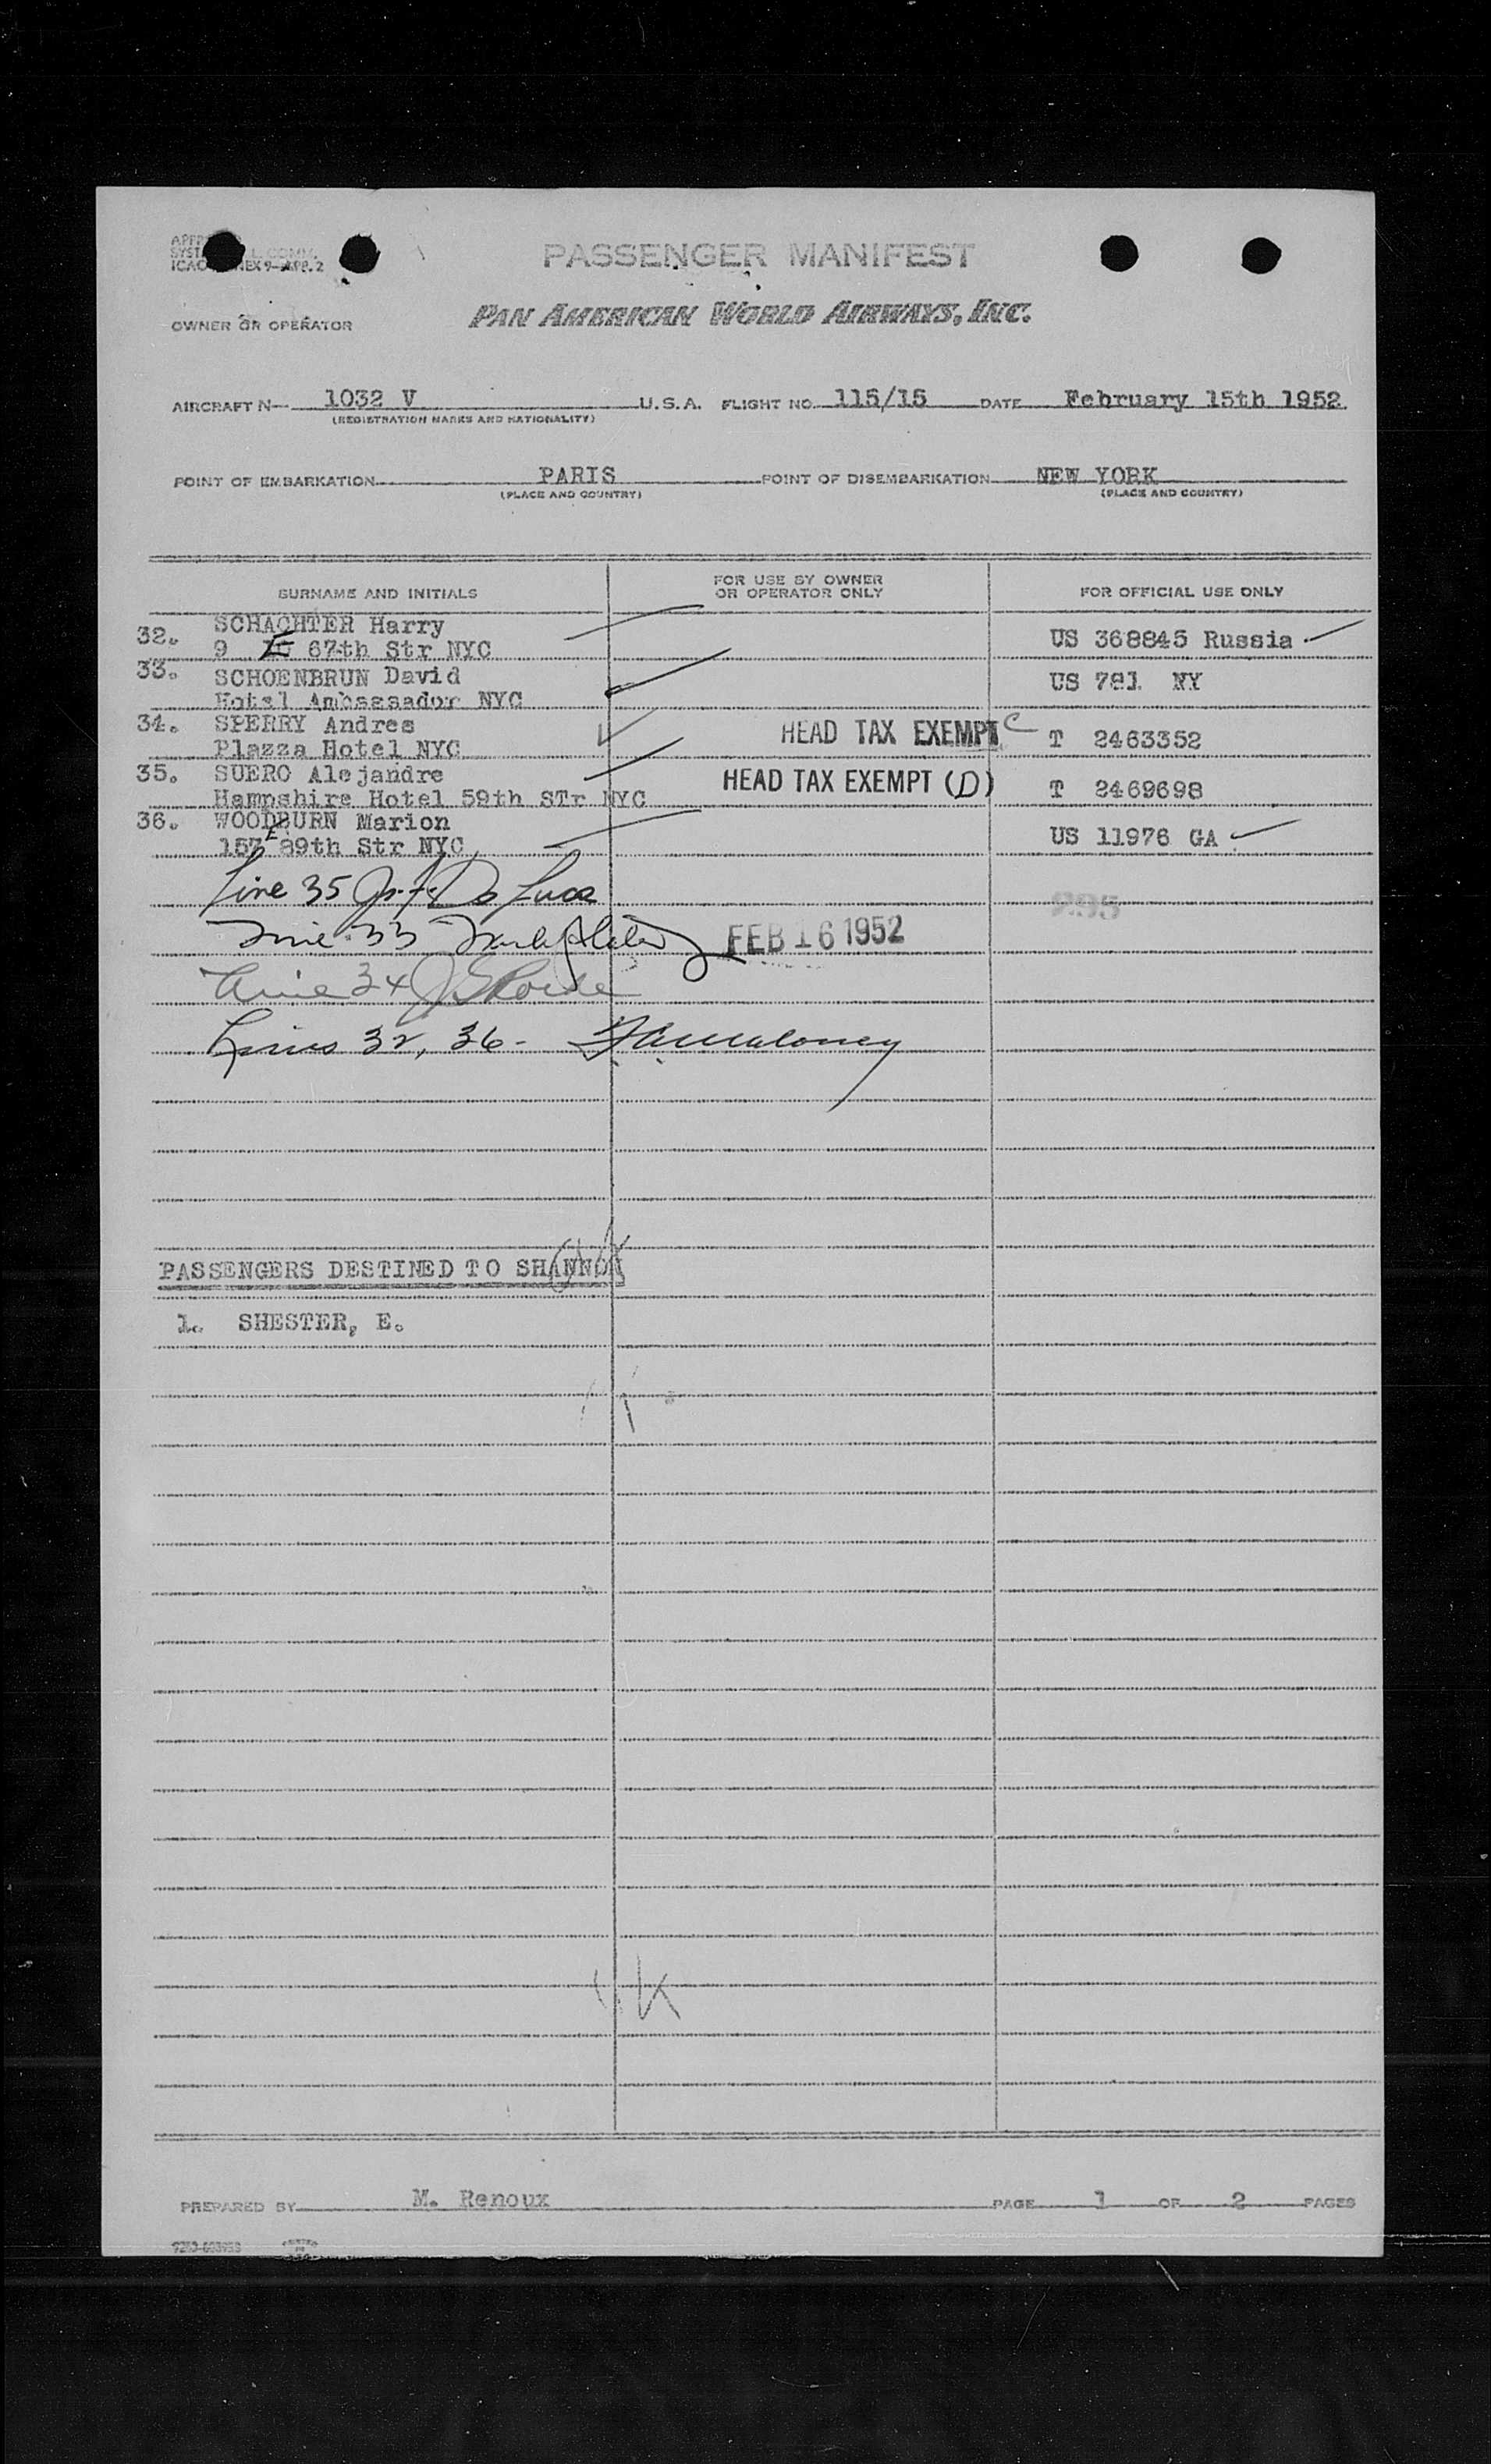 PASSENGER MANIFEST
ICAO ANNEX 9-APP. 2
OWNER OR OPERATOR PAN AMERICAN WORLD AIRWAYS, INC.
AIRCRAFT N- 1032 V U.S.A. FLIGHT NO. 115/15 DATE February 15th 1952
(REGISTRATION MARKS AND NATIONALITY)
POINT OF EMBARKATION PARIS POINT OF DISEMBARKATION NEW YORK
(PLACE AND COUNTRY) (PLACE AND COUNTRY)
SURNAME AND INITIALS FOR USE BY OWNER OR OPERATOR ONLY FOR OFFICIAL USE ONLY
32. SCHACHTER Harry
9 E 67th Str NYC US 368845 Russia
33. SCHOENBRUN David US 781 NY
Hotel Ambassador NYC
34. SPERRY Andres HEAD TAX EXEMPT C T 2463352
Plazza Hotel NYC
35. SUERO Alejandre HEAD TAX EXEMPT (D) T 2469698
Hampshire Hotel 59th STr NYC
36. WOODBURN Marion US 11976 GA
157 E 89th Str NYC
Line 35 De Luca
295
Line 33 FEB 16 1952
Line 34
Lines 32, 36 - Maloney
PASSENGERS DESTINED TO SHANNON
1. SHESTER, E.
PREPARED BY M. Renoux PAGE 1 OF 2 PAGES